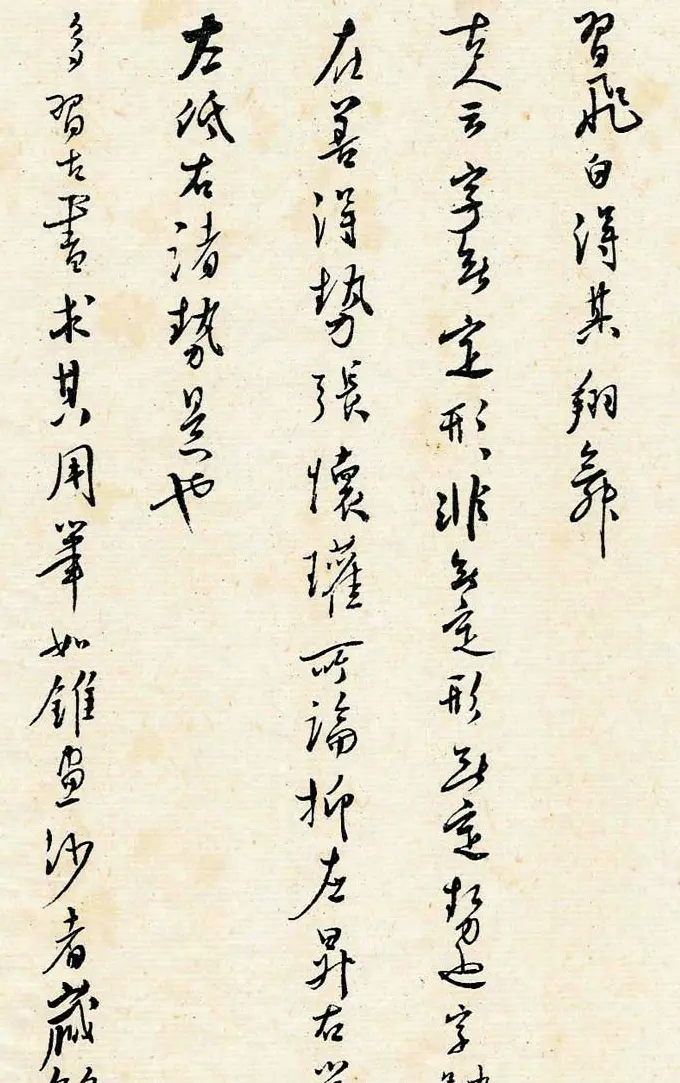 習飛白得其翔舞
古人云字無定形非無定形無定勢也字
在善得勢張懷瓘所論抑左昇右
左低右諸勢是也
多習古書求其用筆如錐畫沙者藏